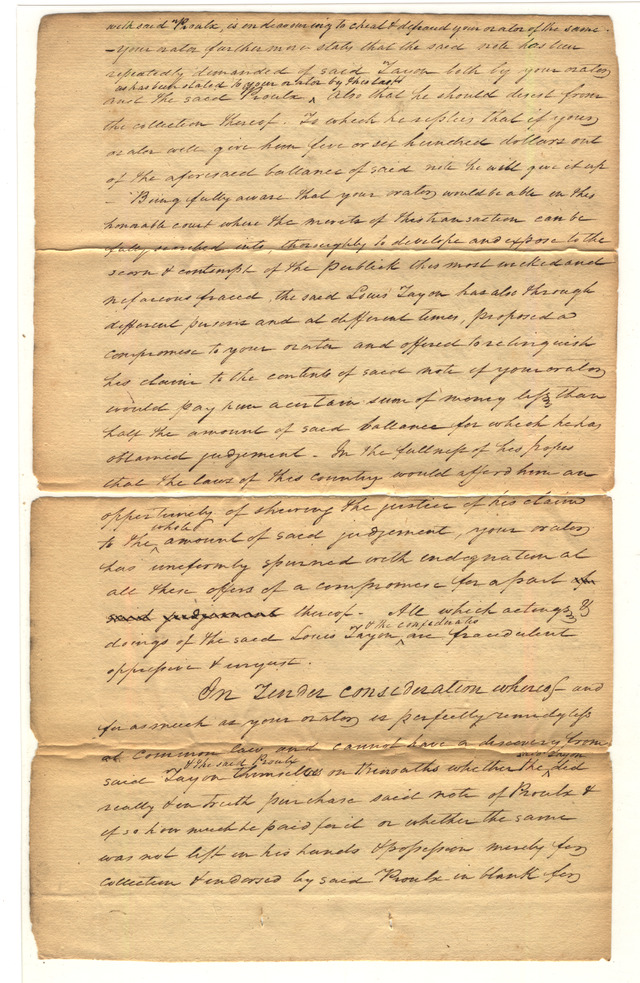 with said Proulx, is endeavouring to cheat & defraud your orator of the same.
– your orator furthermore states that the said note has been
repeatedly demanded of said Tayon both by your orator
as has been stated to your orator by this last
and the said Proulx ^ Also that he should desist from
the collection thereof. To which he replies that if your
orator will give him five or six hundred dollars out
of the aforesaid ballance of said note he will give it up
– Being fully aware that your orator would be able in this
honorable court where the merits of this transaction can be
fully searched into, thoroughly to develope and expose to the
scorn & contempt of the publick this most wicked and
nefareous fraud, the said Louis Tayon has also through
different persons and at different times, proposed a
compromise to your orator and offered to relinquish
his claim to the contents of said note if your orator
would pay him a certain sum of money less than
half the amount of said ballance for which he has
obtained judgement – In the fullness of his hopes
that the laws of this country would afford him an
opportunity of shewing the justice of his claim
whole
to the ^ amount of said judgement, your orator
has uniformly spurned with indegnation at
all these offers of a compromise for a part of
said judgement thereof – All which actings &
& the confederates
doings of the said Louis Tayon ^ are fraudulent
oppressive & unjust.
In Tender consideration whereof – and
for as much as your orator is perfectly remedyless
at common law and cannot have a discovery from
& the said Proulx said Tayon
said Tayon themselves on their oaths whether the ^ did
really & in truth purchase said note of Proulx &
if so how much he paid for it or whether the same
was not left in his hands & possession merely for
collection & endorsed by said Proulx in blank for